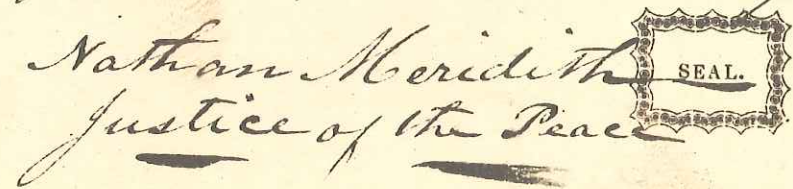 Nathan Meridith SEAL.
Justice of the Peace